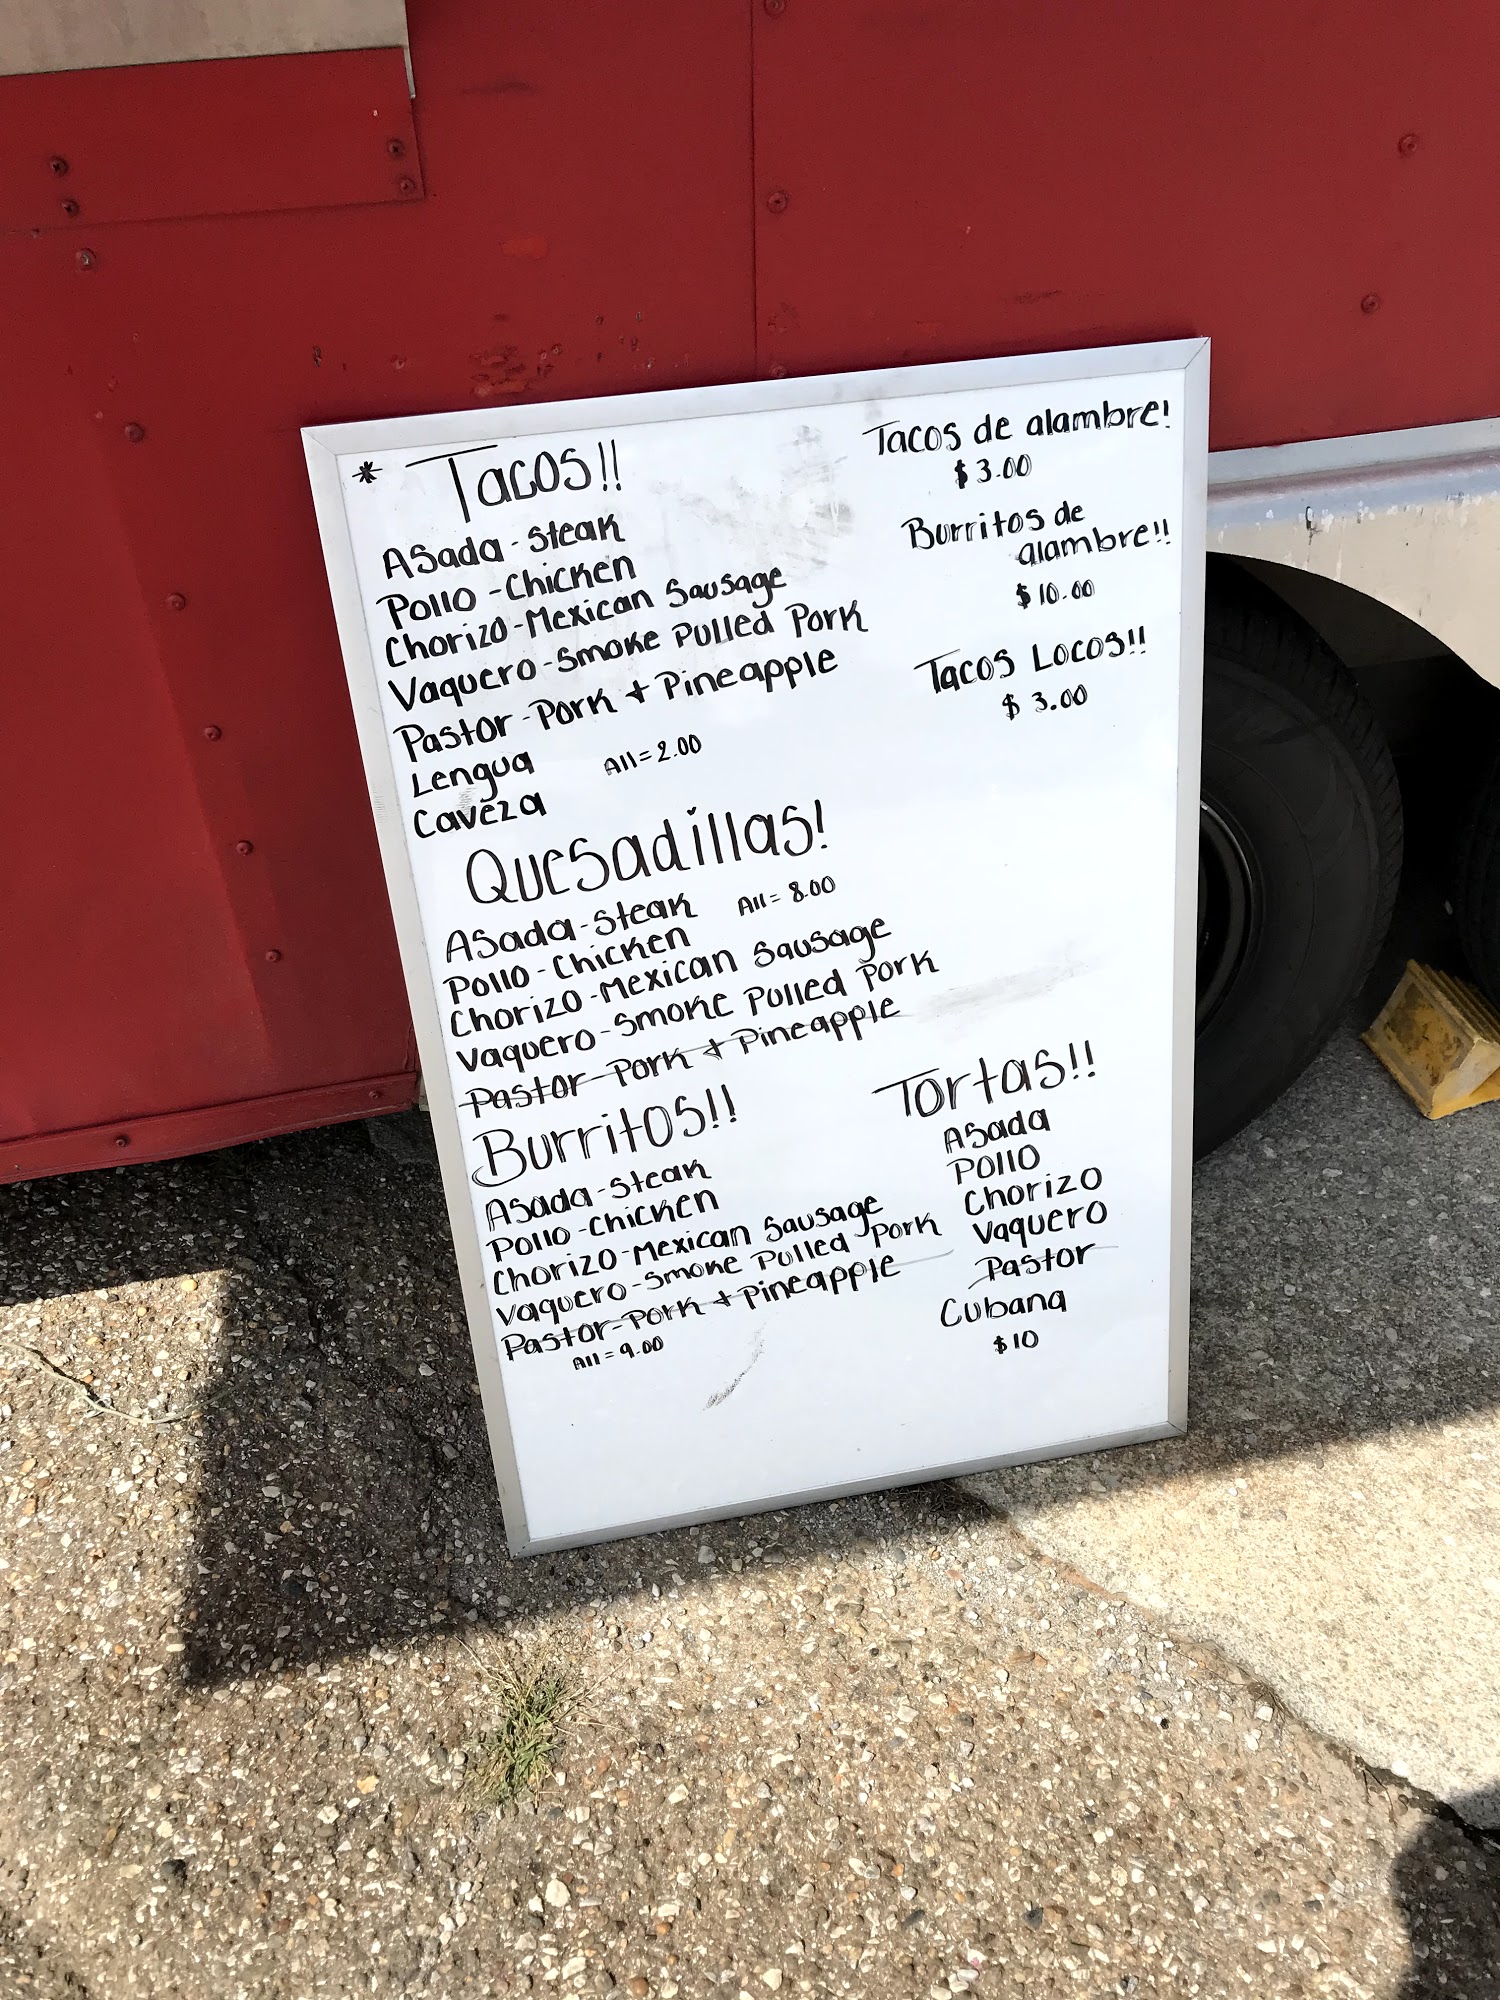 * Tacos!!
Asada - Steak
Pollo - Chicken
Chorizo - Mexican Sausage
Vaquero - Smoke Pulled Pork
Pastor - Pork + Pineapple
Lengua
All = 2.00
Caveza
Tacos de alambre!
$ 3.00
Burritos de
alambre!!
$ 10.00
Tacos Locos!!
$ 3.00
Quesadillas!
Asada - Steak
All = 8.00
Pollo - Chicken
Chorizo - Mexican Sausage
Vaquero - Smoke Pulled Pork
Pastor - Pork + Pineapple
Burritos!!
Asada - Steak
Pollo - Chicken
Chorizo - Mexican Sausage
Vaquero - Smoke Pulled Pork
Pastor - Pork + Pineapple
All = 9.00
Tortas!!
Asada
Pollo
Chorizo
Vaquero
Pastor
Cubana
$ 10